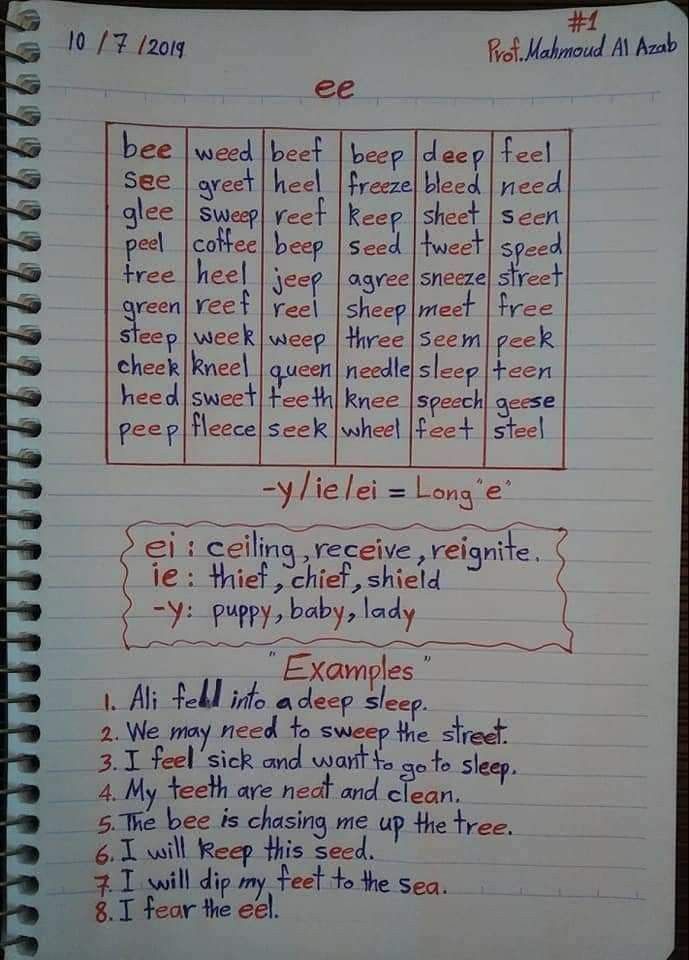 #1
10 / 7 / 2019
Prof. Mahmoud Al Azab
ee
bee weed beef beep deep feel
see greet heel freeze bleed need
glee sweep reef keep sheet seen
peel coffee beep seed tweet speed
tree heel jeep agree sneeze street
green reef reel sheep meet free
steep week weep three seem peek
cheek kneel queen needle sleep teen
heed sweet teeth knee speech geese
peep fleece seek wheel feet steel
-y/ie/ei = Long "e"
ei : ceiling, receive, reignite.
ie : thief, chief, shield
-y: puppy, baby, lady
"Examples"
1. Ali fell into a deep sleep.
2. We may need to sweep the street.
3. I feel sick and want to go to sleep.
4. My teeth are neat and clean.
5. The bee is chasing me up the tree.
6. I will keep this seed.
7. I will dip my feet to the sea.
8. I fear the eel.